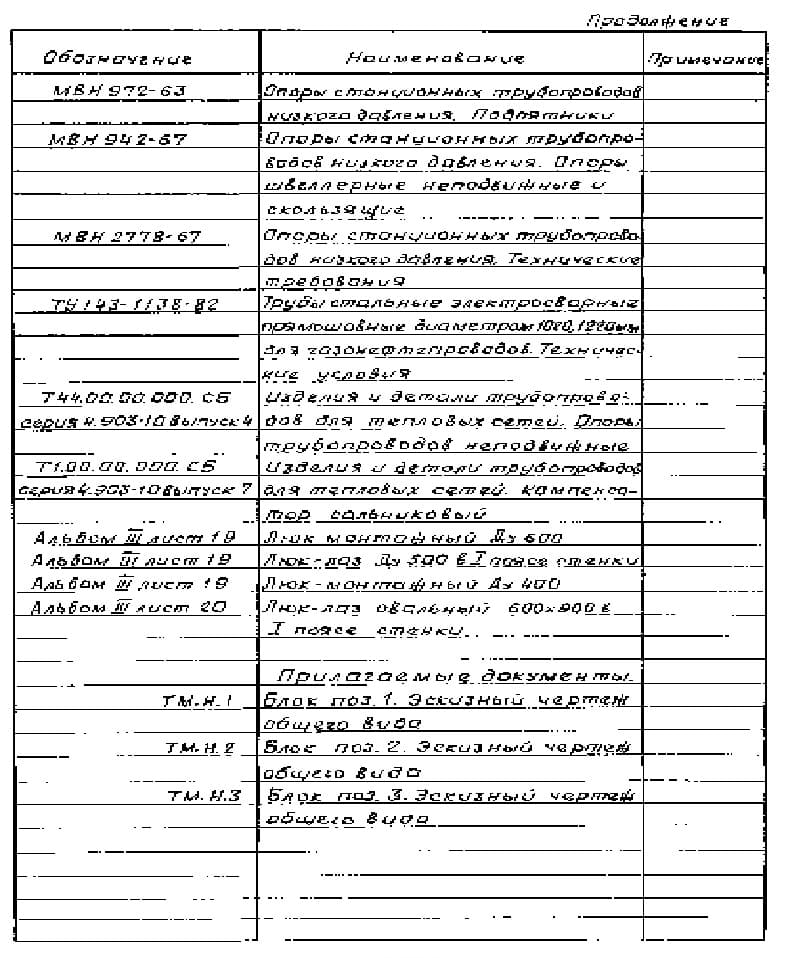 Продолжение
Обозначение Наименование Примечание
МВН 972-63 Опоры станционных трубопроводов
низкого давления. Подпятники
МВН 942-67 Опоры станционных трубопро-
водов низкого давления. Опоры
швеллерные неподвижные и
скользящие
МВН 2778-67 Опоры станционных трубопрово
дов низкого давления. Технические
требования
ТУ 143-1138-82 Трубы стальные электросварные
прямошовные диаметром
для газонефтепроводов. Техничес-
кие условия
Т44.00.00.000.СБ Изделия и детали трубопрово-
серия 4.903-10 выпуск 4 дов для тепловых сетей. Опоры
трубопроводов неподвижные
Т1.00.00.000.СБ Изделия и детали трубопроводов
серия 4.903-10 выпуск 7 для тепловых сетей. Компенса-
тор сальниковый
Альбом III лист 19 Люк монтажный Ду 600
Альбом III лист 19 Люк-лаз Ду 500 в I поясе стенки
Альбом III лист 19 Люк-монтажный Ду 400
Альбом III лист 20 Люк-лаз овальный 600×900 в
I поясе стенки
Прилагаемые документы
ТМ.Н.1 Блок поз. 1. Эскизный чертеж
общего вида
ТМ.Н.2 Блок поз. 2. Эскизный чертеж
общего вида
ТМ.Н.3 Блок поз. 3. Эскизный чертеж
общего вида